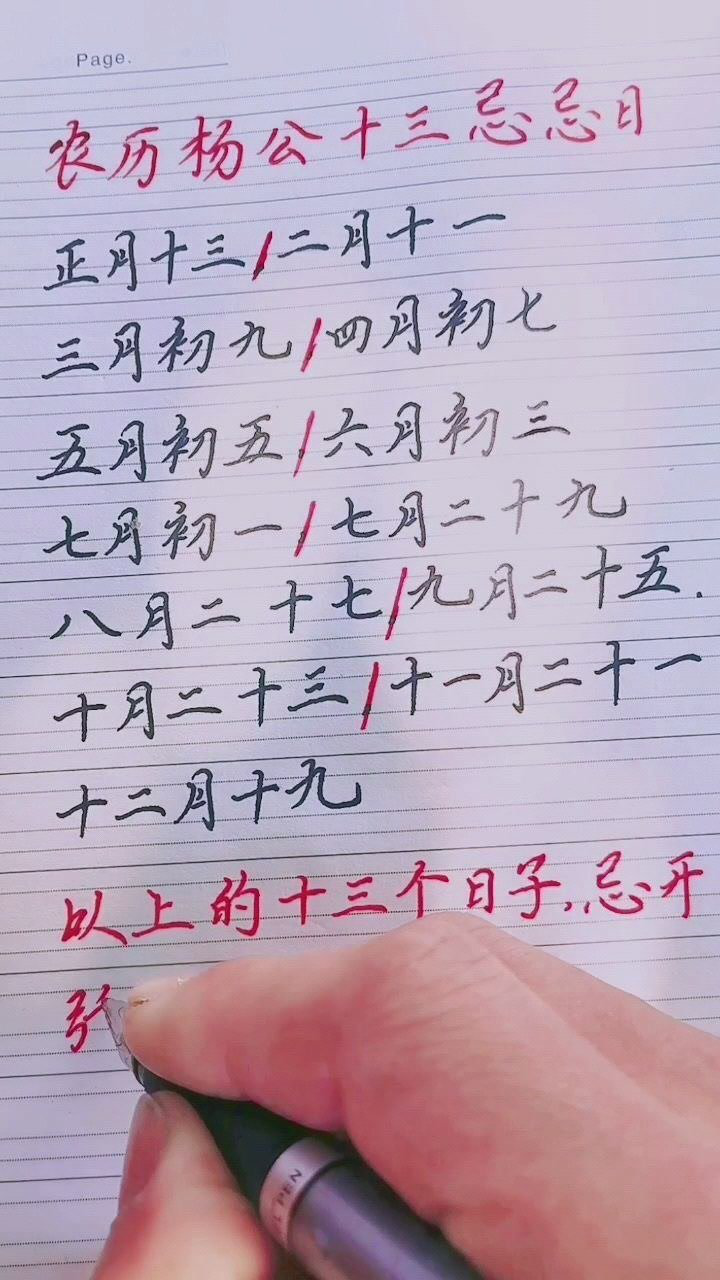 Page.
农历杨公十三忌忌日
正月十三/二月十一
三月初九/四月初七
五月初五/六月初三
七月初一/七月二十九
八月二十七/九月二十五.
十月二十三/十一月二十一
十二月十九
以上的十三个日子,忌开
PEN